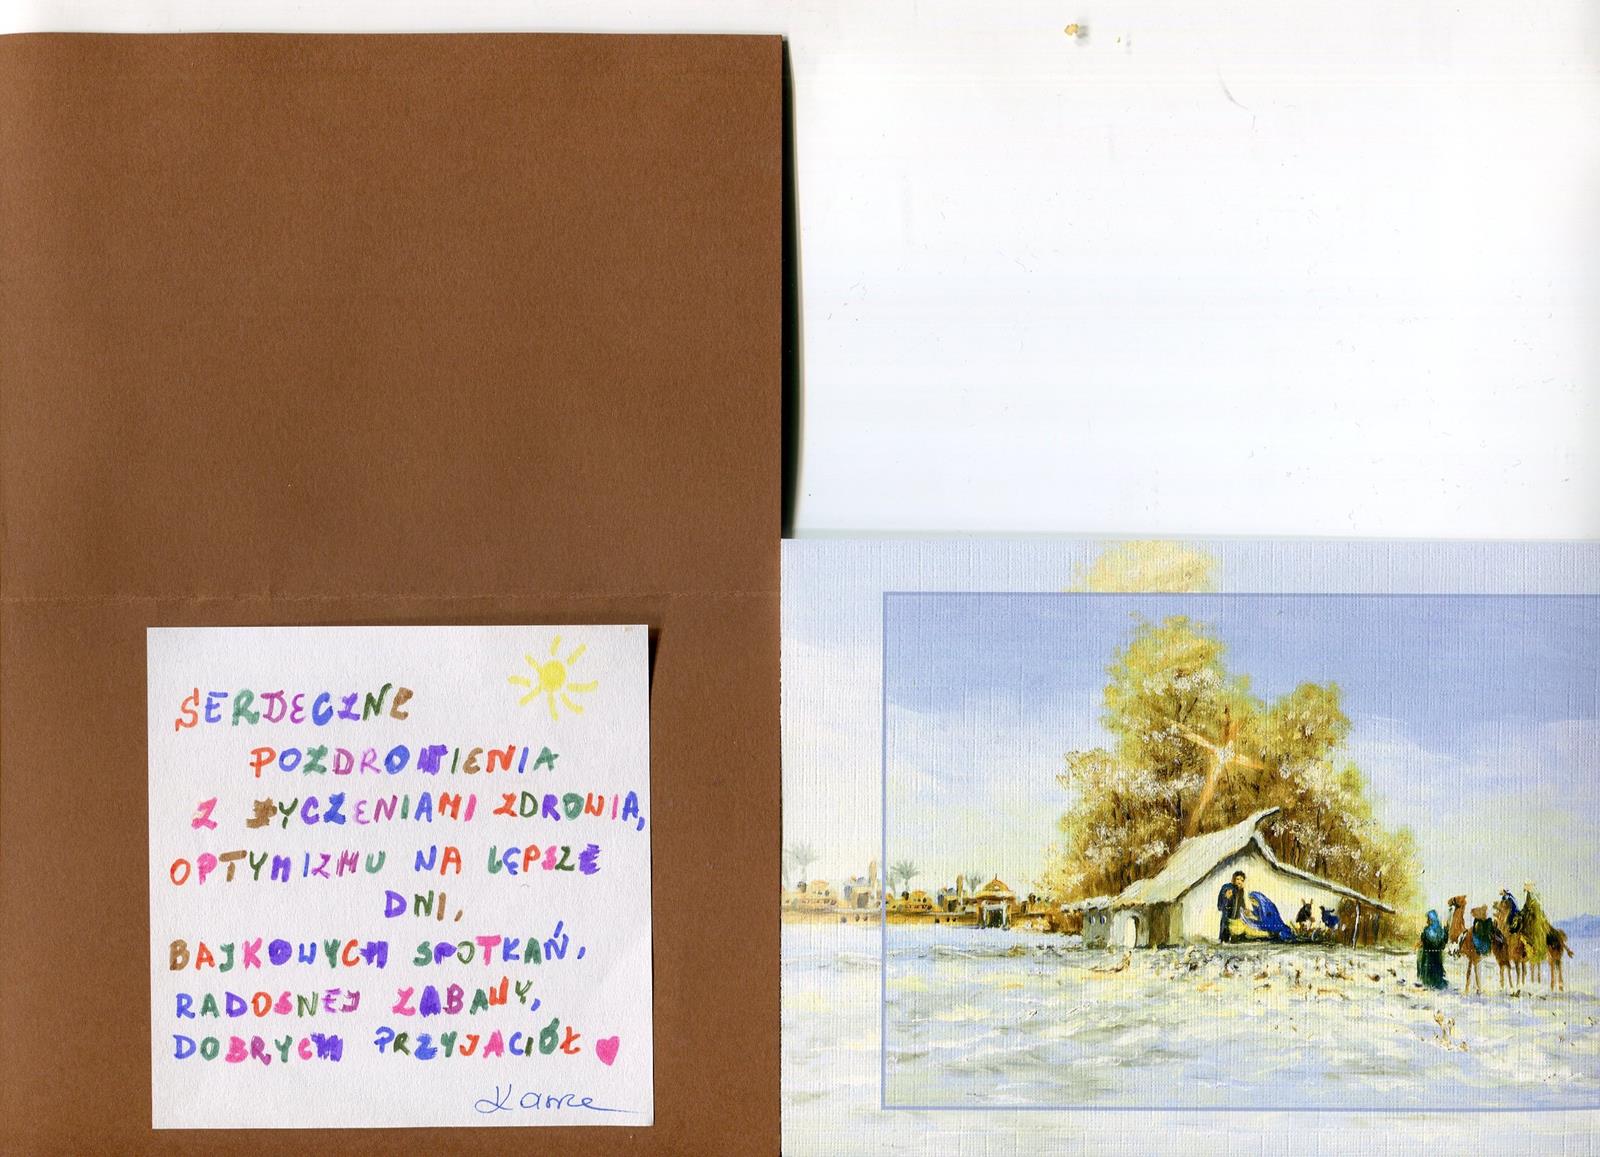 SERDECZNE
POZDROWIENIA
Z ŻYCZENIAMI ZDROWIA,
OPTYMIZMU NA LEPSZE
DNI,
BAJKOWYCH SPOTKAŃ,
RADOSNEJ ZABAWY,
DOBRYCH PRZYJACIÓŁ